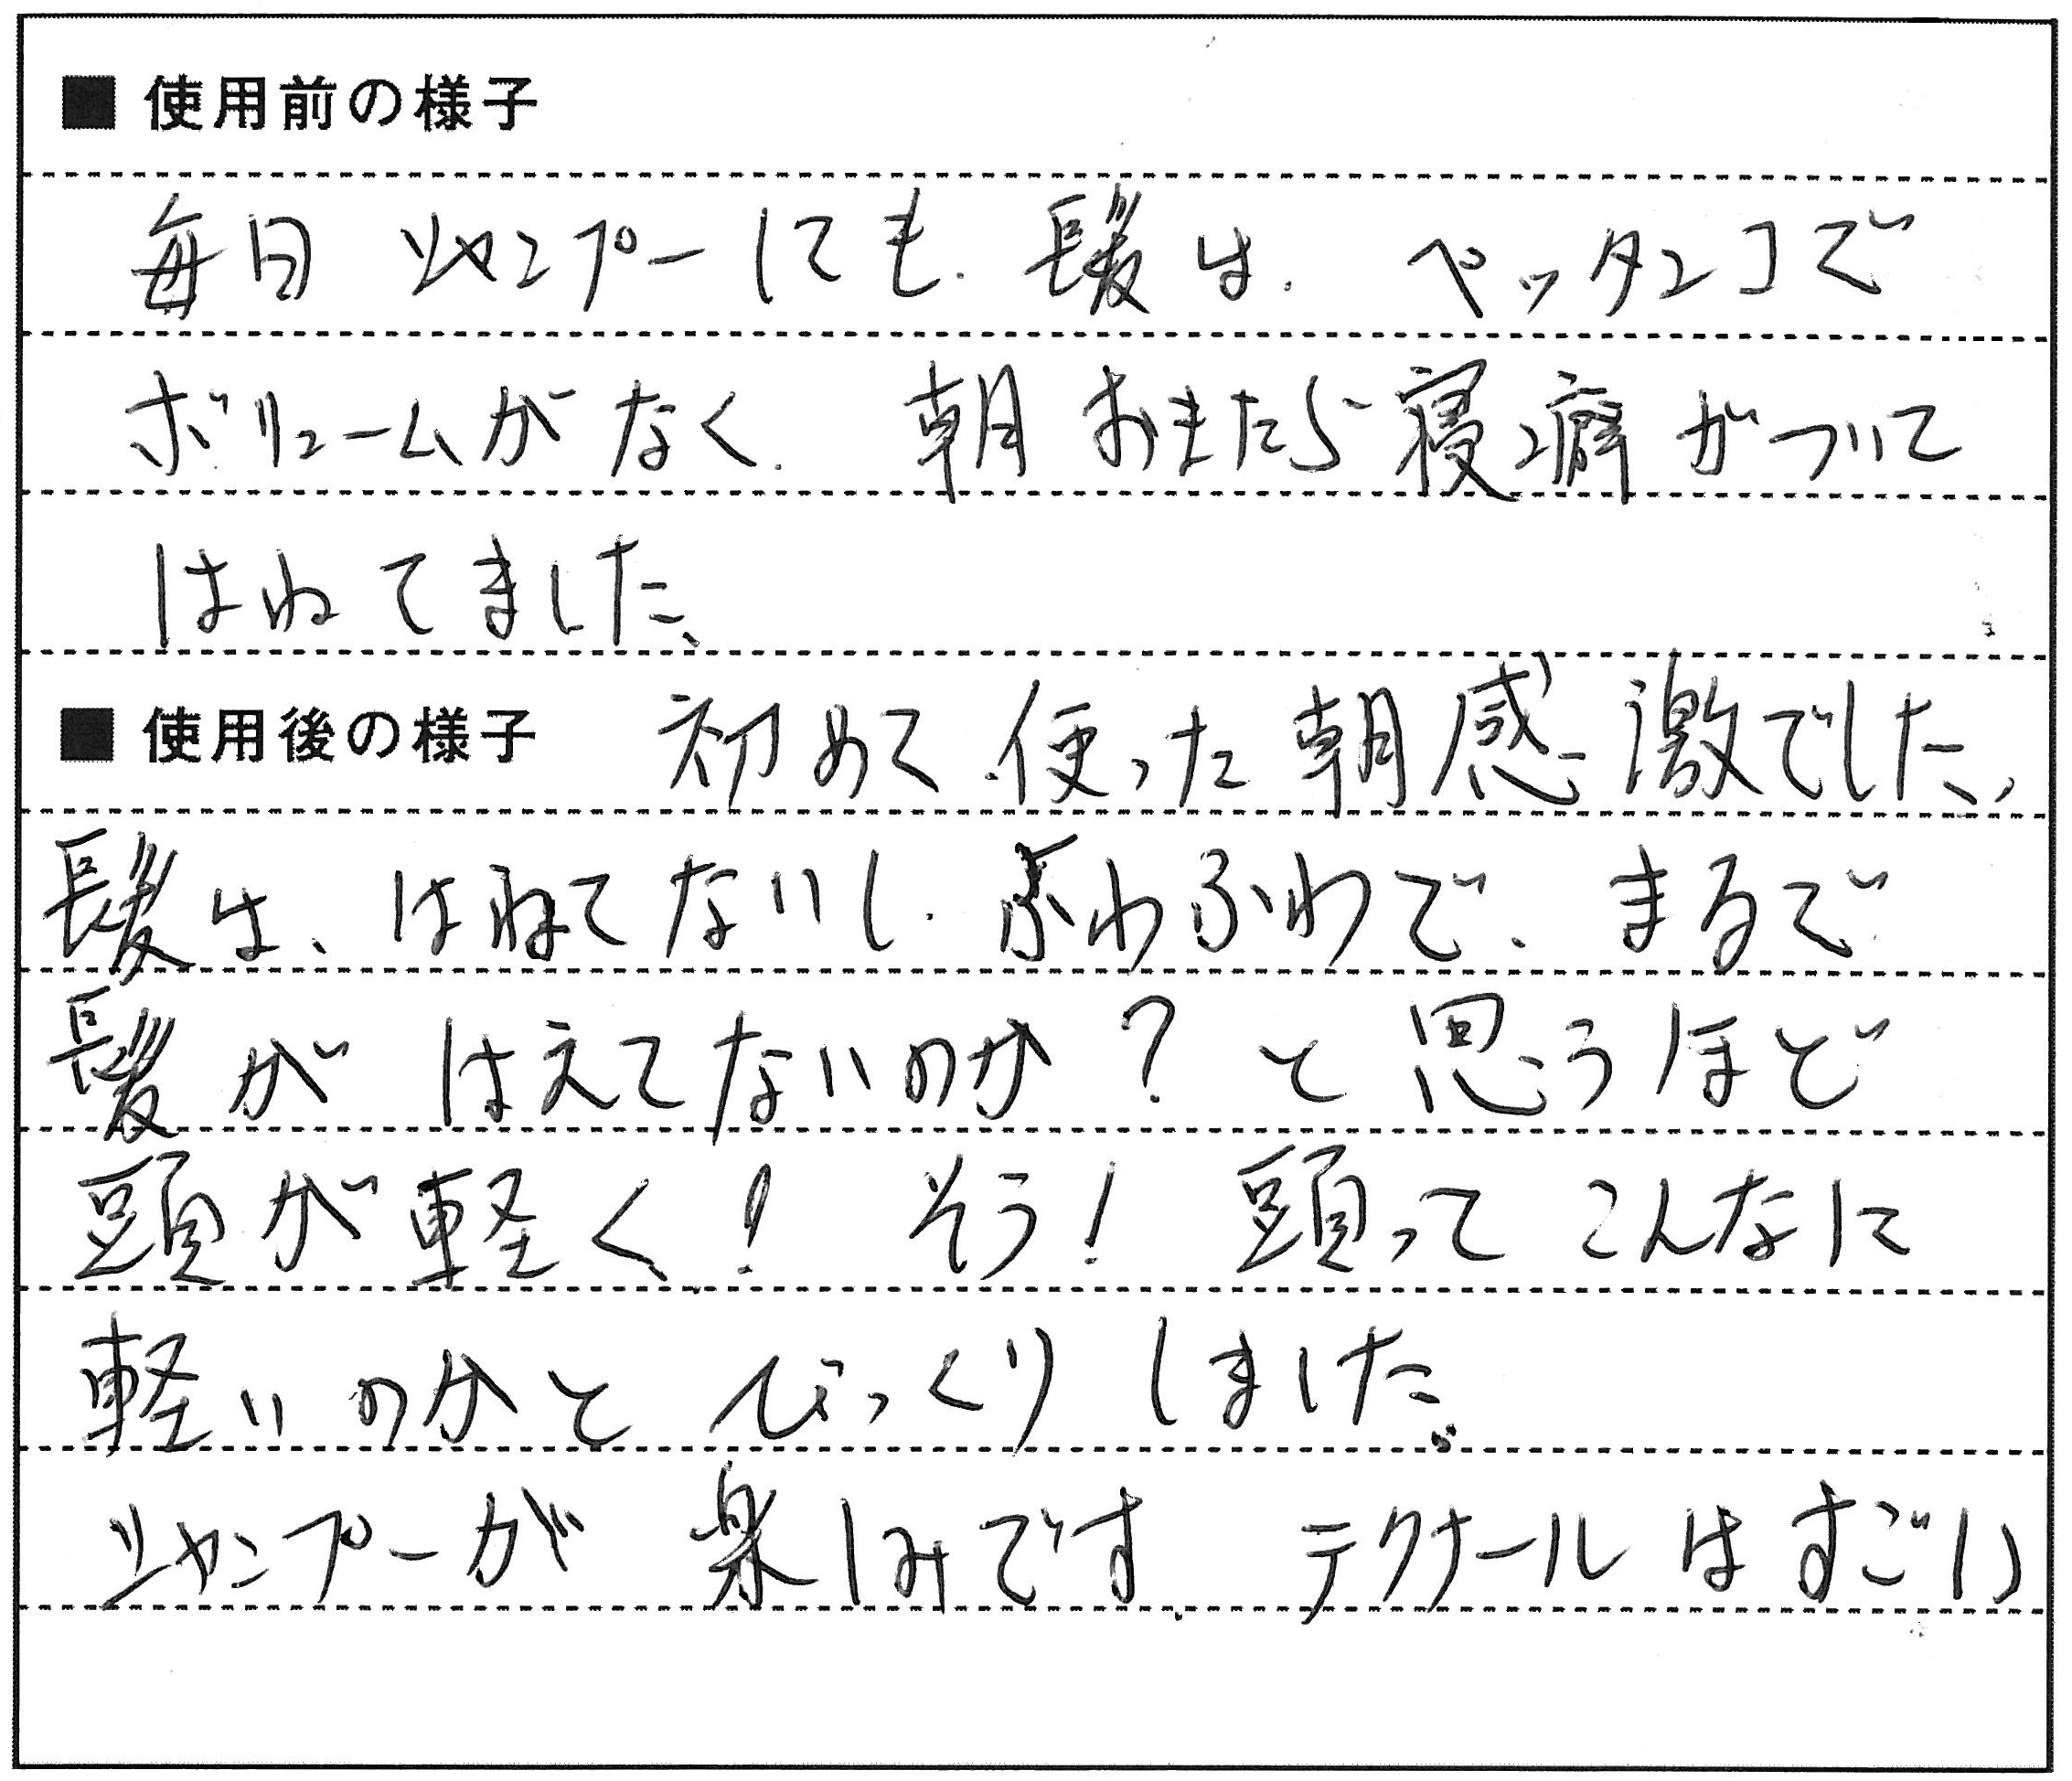 ■ 使用前の様子
毎日 シャンプーしても、髪は、ペッタンコで
ボリュームがなく、朝おきたら寝癖がついて
はねてました、
■ 使用後の様子 初めて使った朝感激でした、
髪は、はねてないし、ふわふわで、まるで
髪が はえてないのか？と思うほど
頭が軽く！ そう！ 頭って こんなに
軽いのかと びっくりしました。
シャンプーが 楽しみです、テクナールはすごい